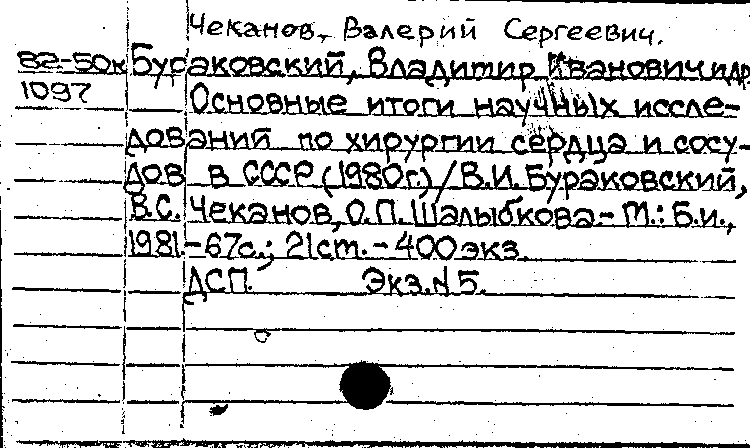 Чеканов, Валерий Сергеевич.
82-50к Бураковский, Владимир Иванович и др
1097 Основные итоги научных иссле-
дований по хирургии сердца и сосу-
дов в СССР (1980г.) / В.И. Бураковский,
В.С. Чеканов, О.П. Шалыбкова.- М.: Б.и.,
1981.-67с.; 21 ст. - 400 экз.
ДСП. Экз. N 5.